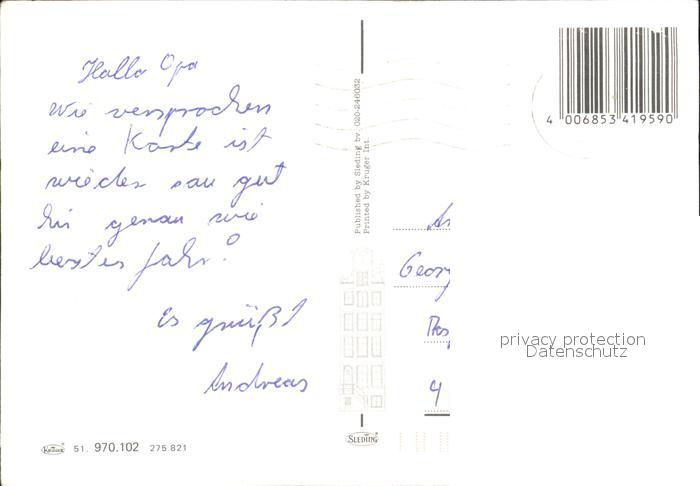 Hallo Opa
Wie versprochen
eine Karte ist
wieder sau gut
hir genau wie
letztes Jahr!
Es grüßt
Andreas
Published by Sleding bv. 020-246032
Printed by Kruger Int.
4 006853 419590
Georg
4
privacy protection
Datenschutz
Krüger 51. 970.102 275 821
SLEDING